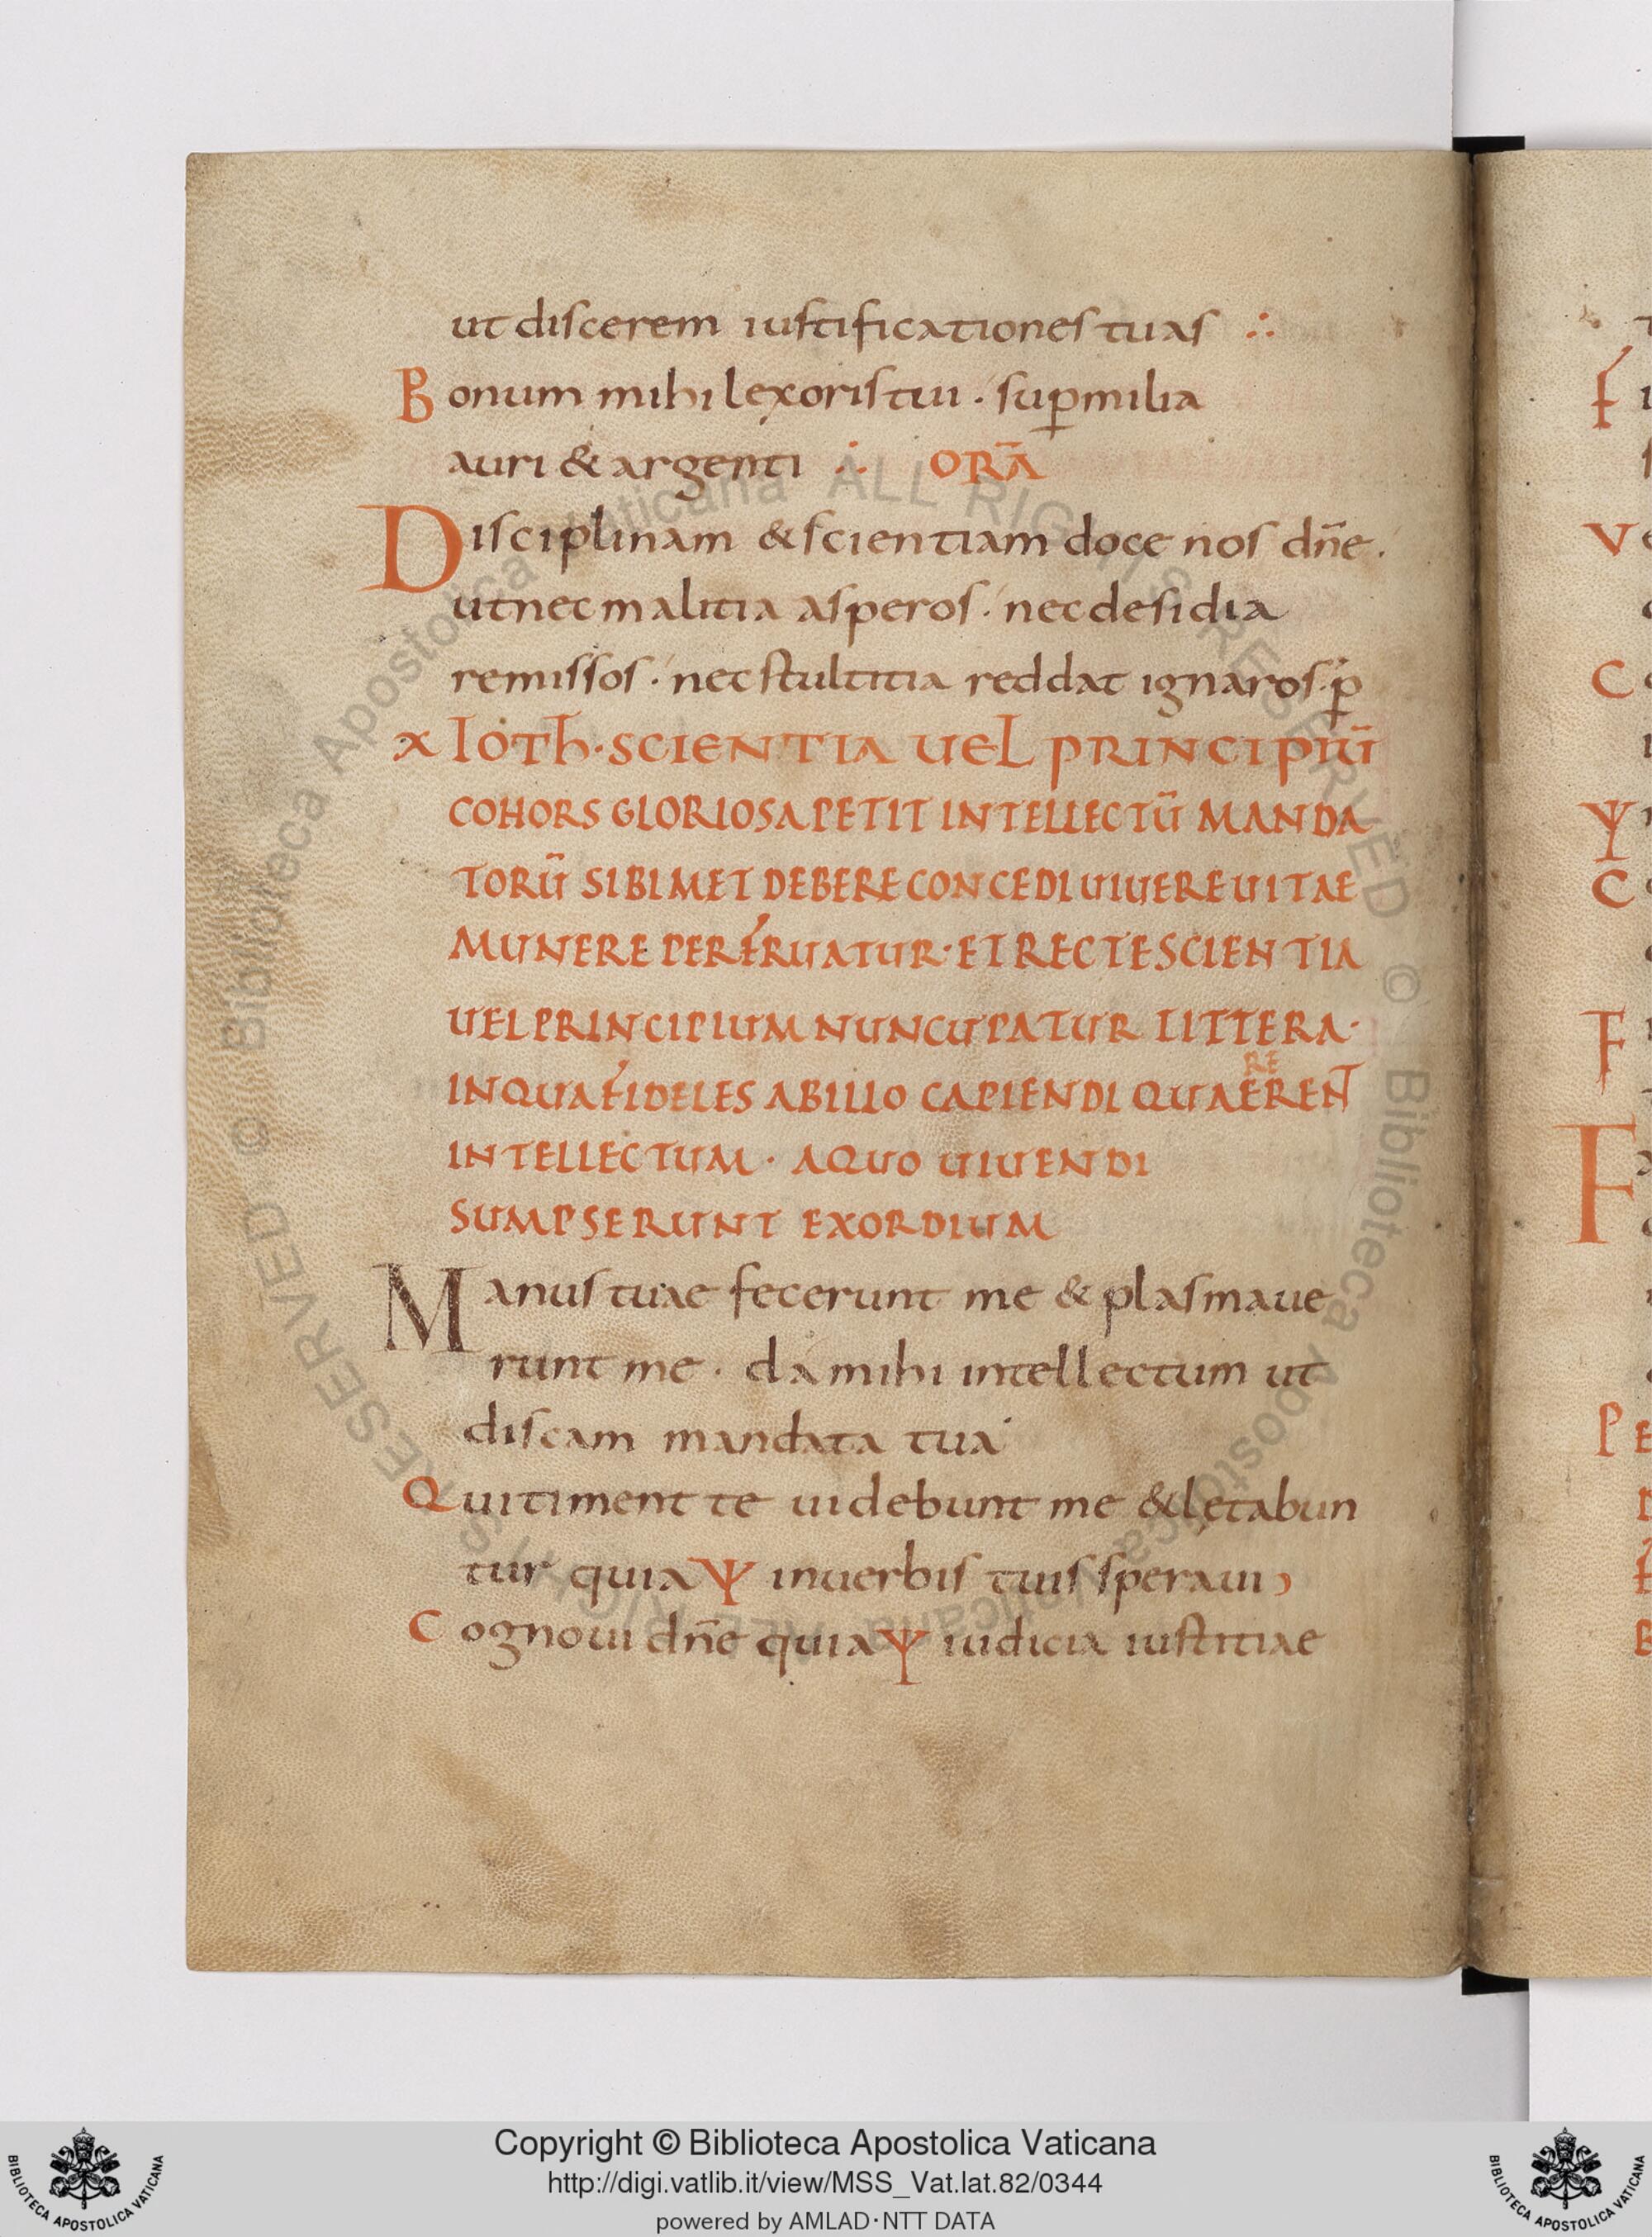 ut discerem iustificationes tuas ∴
Bonum mihi lex oris tui · sup̱ milia
auri & argenti ∴ ORĀ
Disciplinam & scientiam doce nos dn̄e .
ut nec malitia asperos · nec desidia
remissos · nec stultitia reddat ignaros · p̱
x IOTh · SCIENTIA UEL PRINCIPIŪ
COHORS GLORIOSA PETIT INTELLECTŪ MANDA
TORŪ SIBIMET DEBERE CONCEDI UIUERE UITAE
MUNERE PERFRUATUR · ET RECTE SCIENTIA
UEL PRINCIPIUM NUNCUPATUR LITTERA ·
RE
IN QUA FIDELES AB ILLO CAPIENDI QUAERENT
INTELLECTUM · A QUO UIUENDI
SUMPSERUNT EXORDIUM
Manus tuae fecerunt me & plasmaue
runt me · da mihi intellectum ut
discam mandata tua
Qui timent te uidebunt me & letabun
tur quia Ψ in uerbis tuis speraui
Cognoui dn̄e quia Ψ iudicia iustitiae
Copyright © Biblioteca Apostolica Vaticana
http://digi.vatlib.it/view/MSS_Vat.lat.82/0344
powered by AMLAD·NTT DATA
BIBLIOTECA APOSTOLICA VATICANA
BIBLIOTECA APOSTOLICA VATICANA
© Biblioteca Apostolica Vaticana ALL RIGHTS RESERVED
© Biblioteca Apostolica Vaticana ALL RIGHTS RESERVED